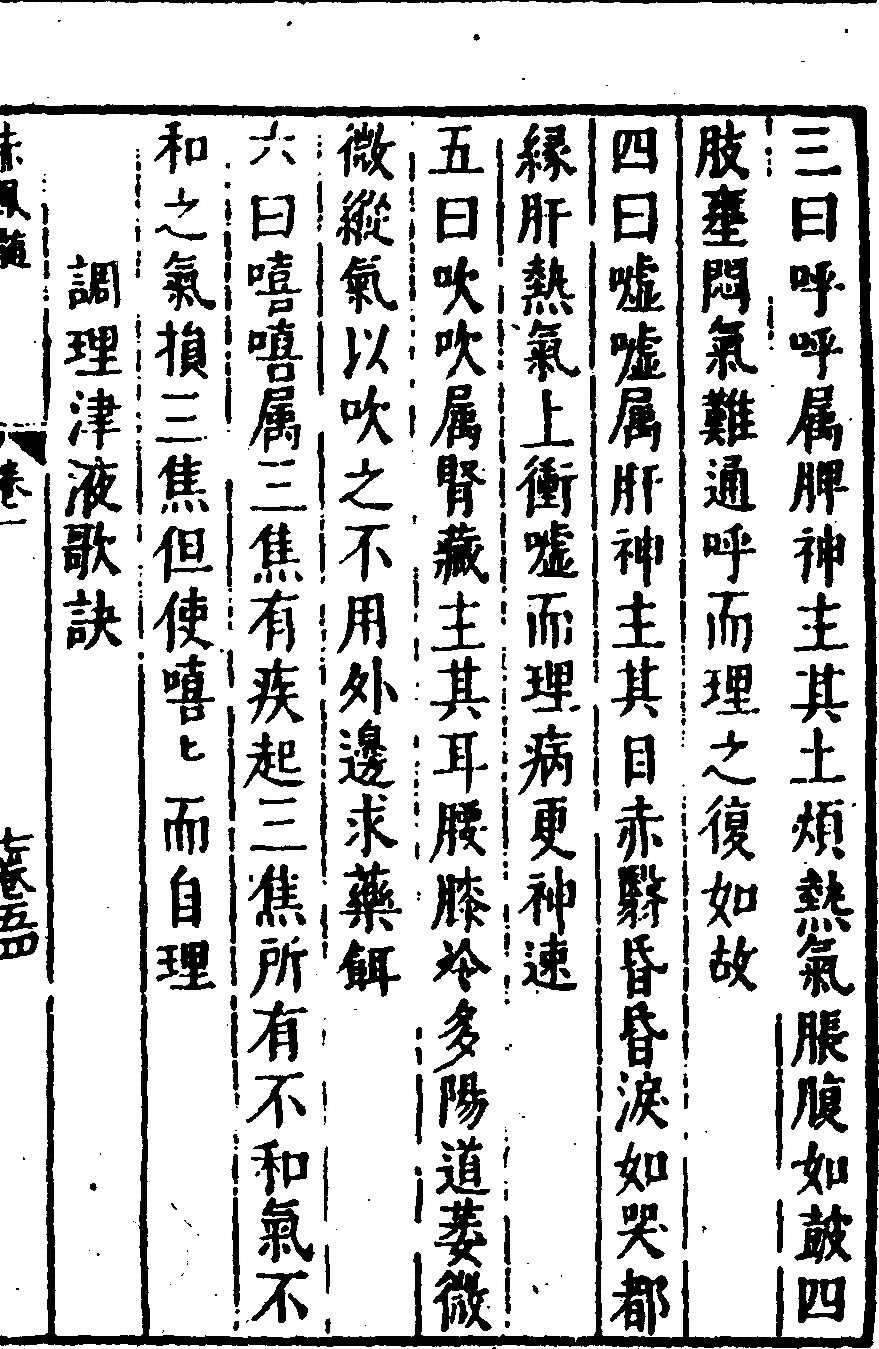 三曰呼呼属脾神主其土煩熱氣脹腹如皷四
肢壅悶氣難通呼而理之復如故
四曰嘘嘘属肝神主其目赤翳昏昏淚如哭都
緣肝熱氣上衝嘘而理病更神速
五曰吹吹属腎藏主其耳腰膝冷多陽道萎微
微縱氣以吹之不用外邊求藥餌
六曰嘻嘻属三焦有疾起三焦所有不和氣不
和之氣損三焦但使嘻〻而自理
調理津液歌訣
卷一